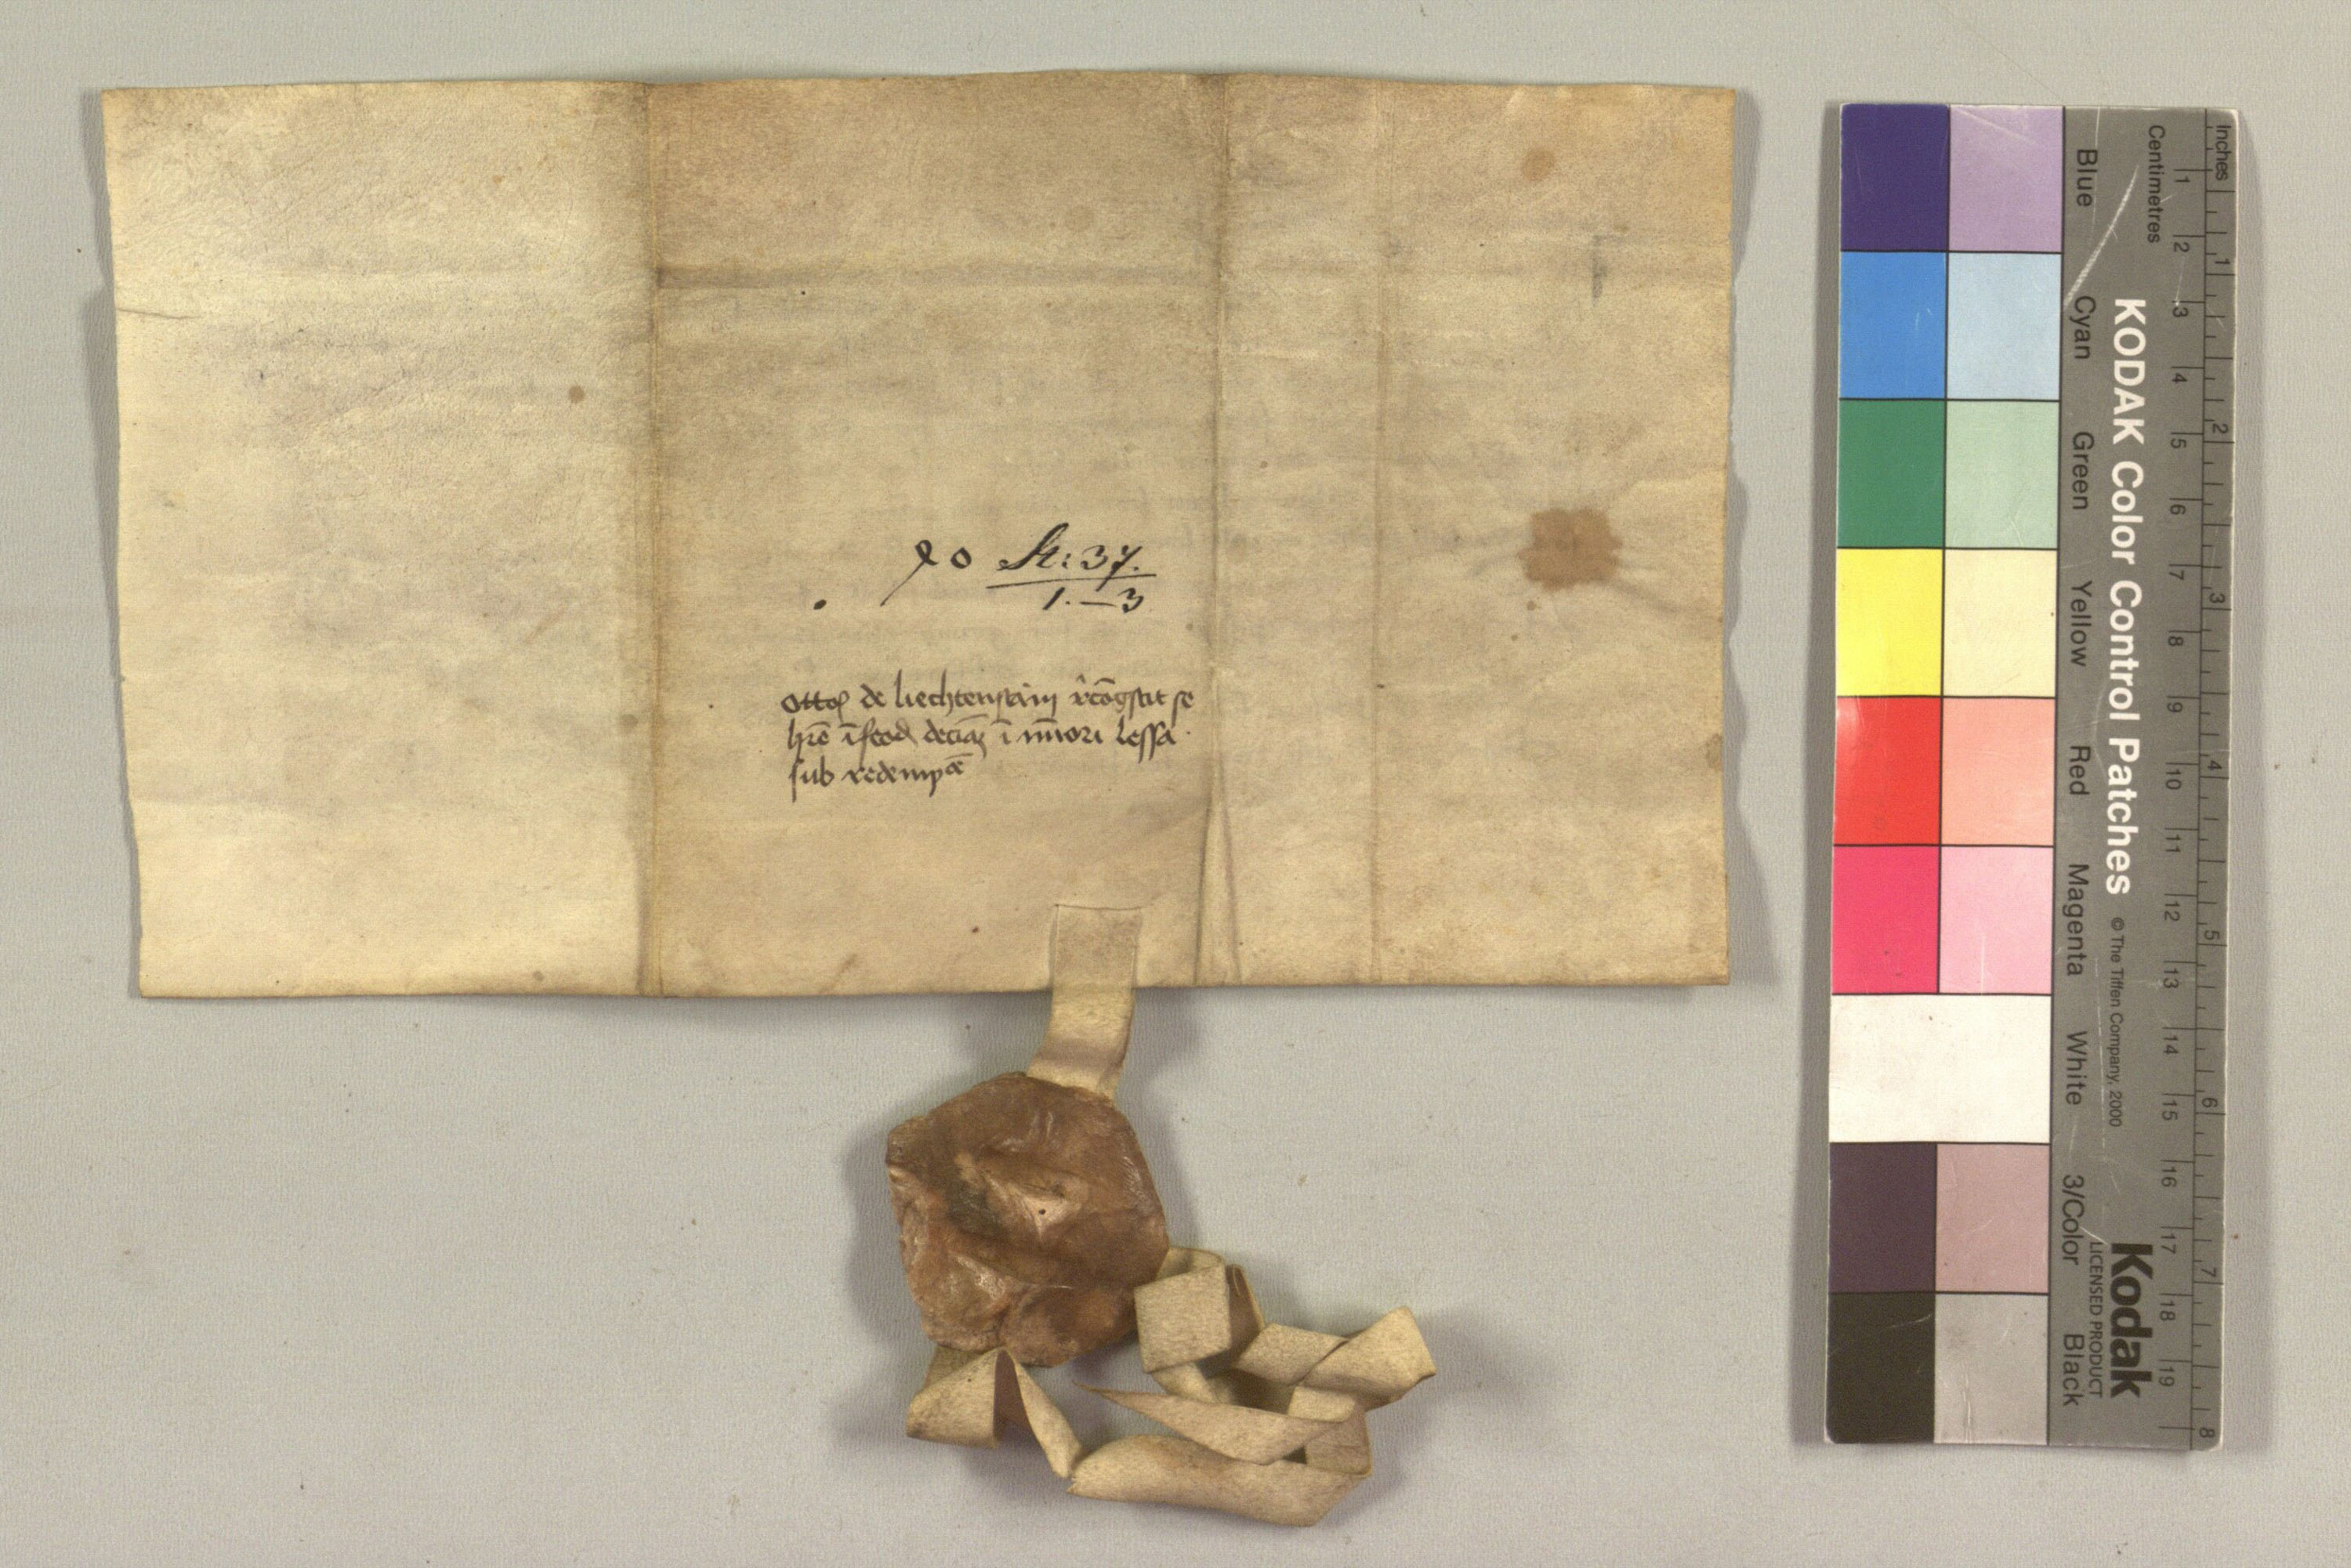 St: 37.
1.—3
otto de liechtenstain rēcōgscit se
hrē ī feod deciā ī mīnori lessa
sub redempcōe
Inches
Centimetres
1 2 3 4 5 6 7 8
1 2 3 4 5 6 7 8 9 10 11 12 13 14 15 16 17 18 19
KODAK Color Control Patches © The Tiffen Company, 2000
Kodak
LICENSED PRODUCT
Blue Cyan Green Yellow Red Magenta White 3/Color Black